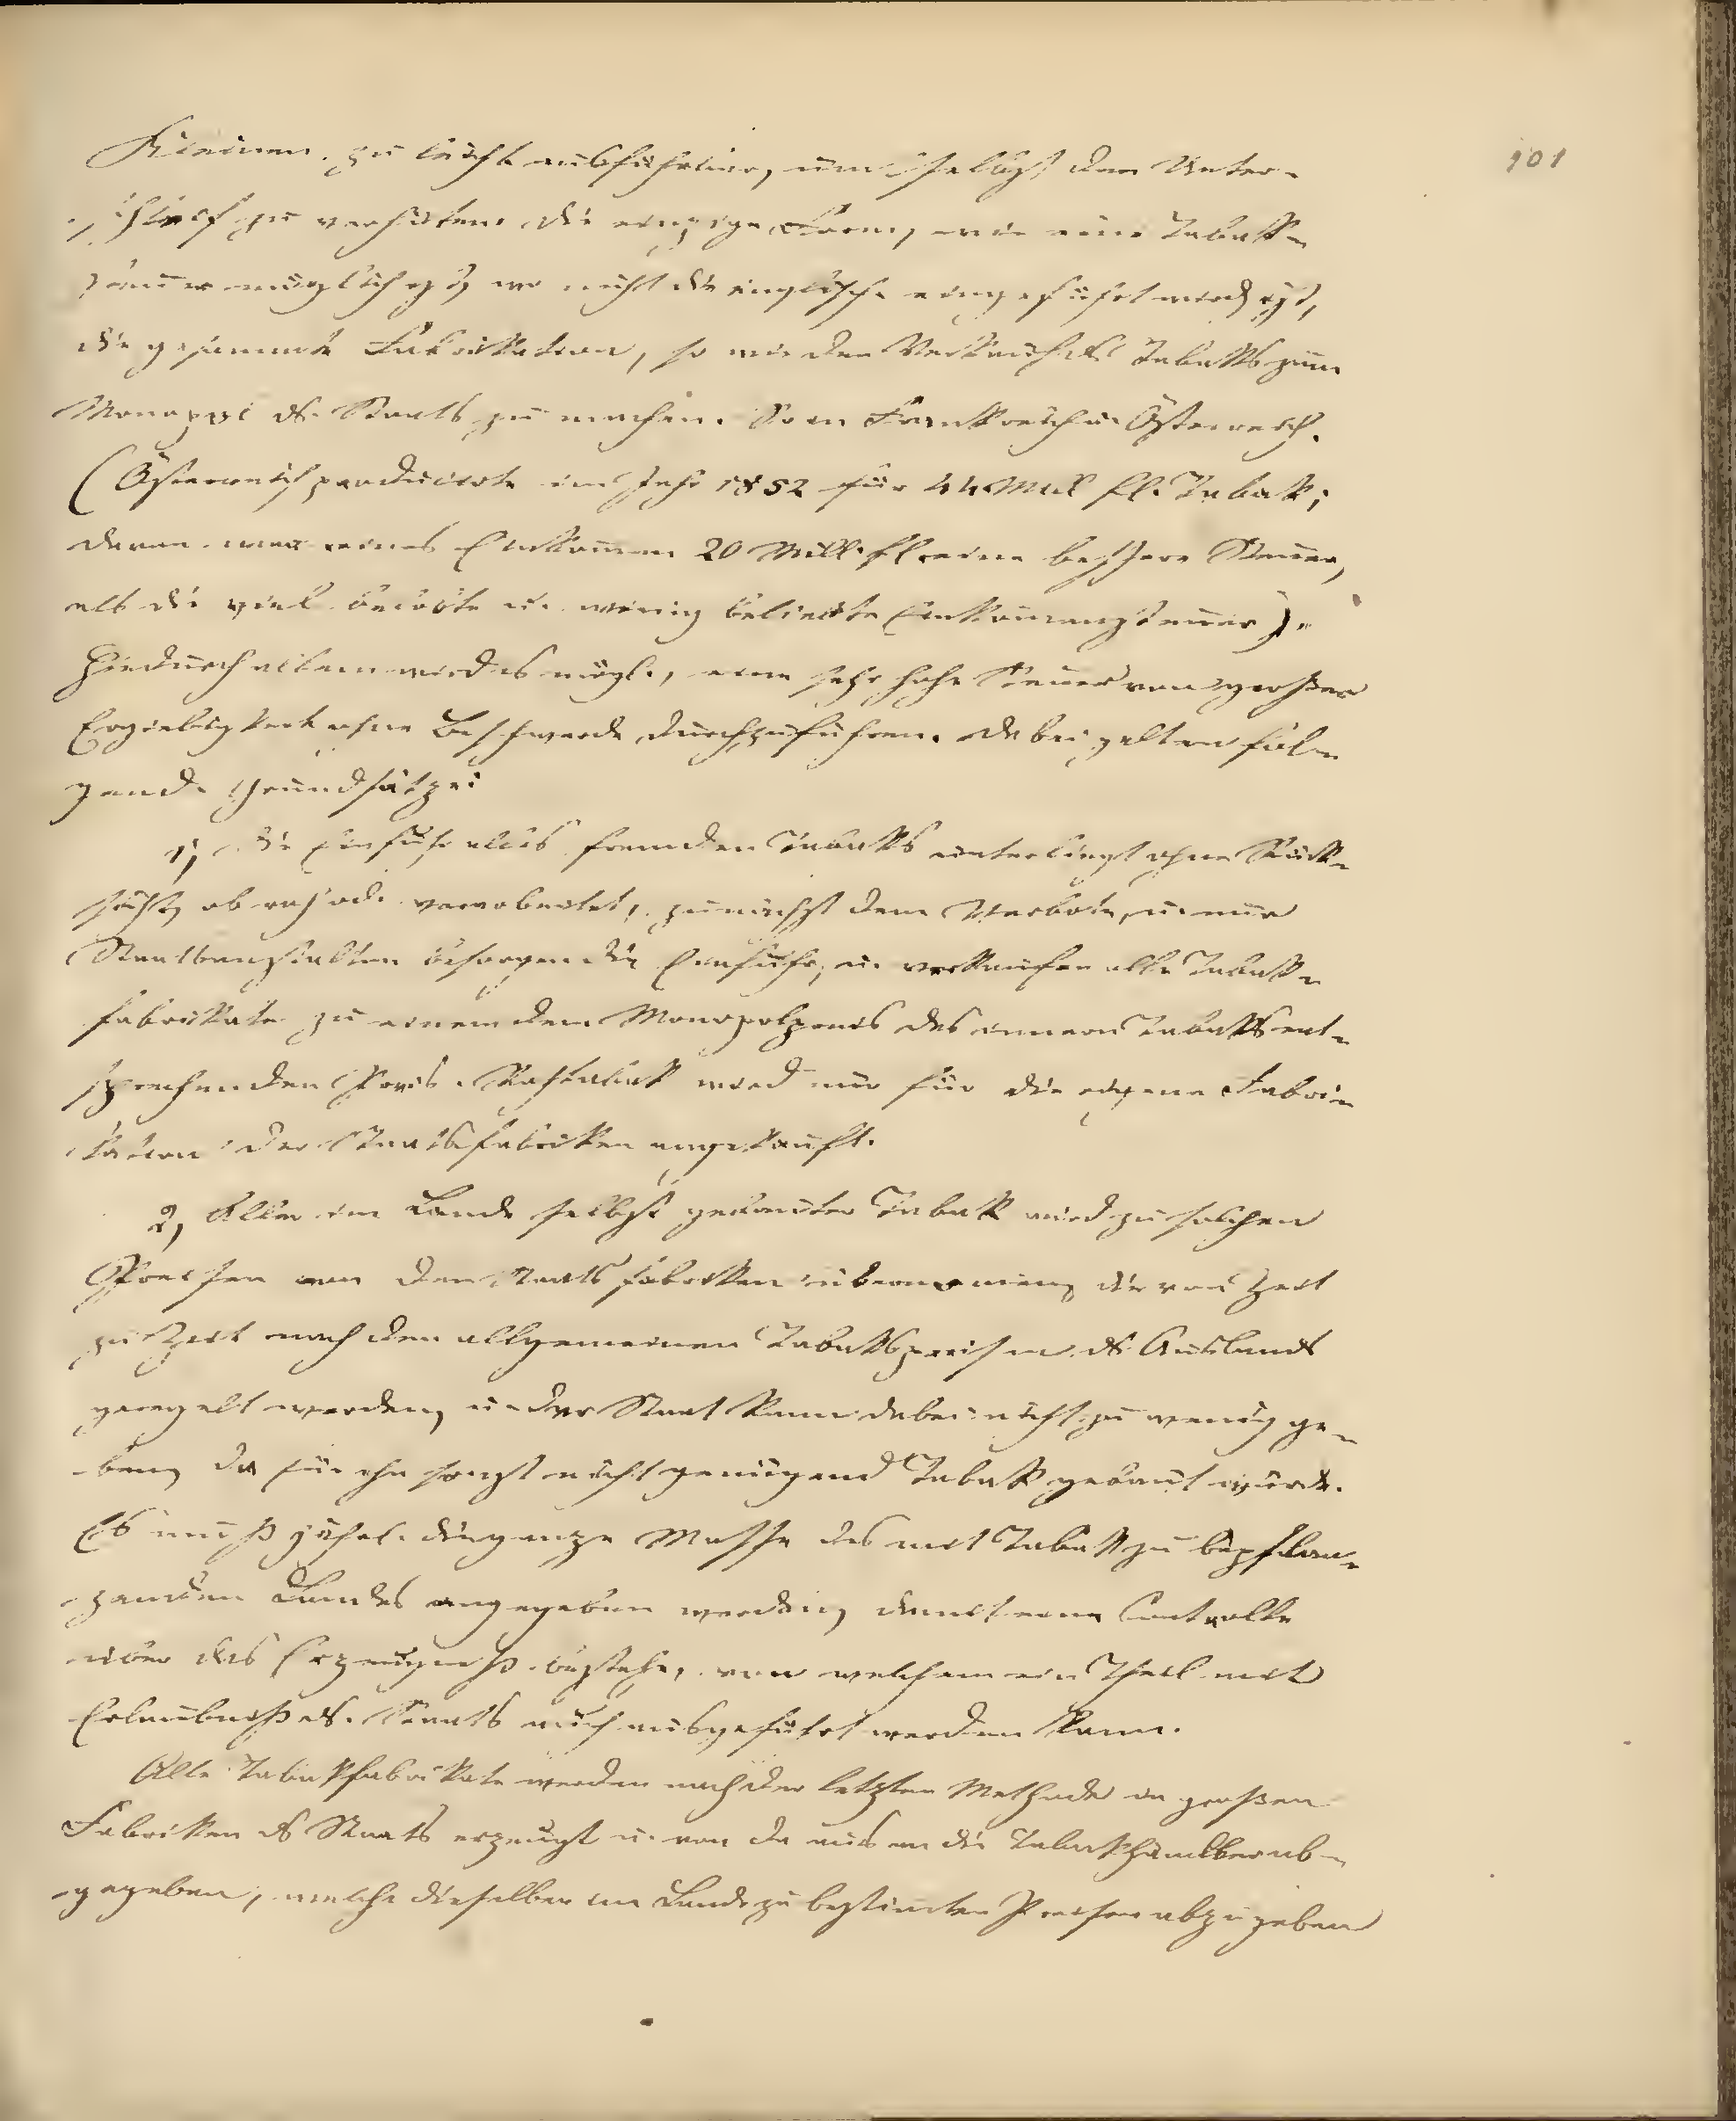 101
Kleinen zu leicht ausführbar, um selbst den Unter-
schleif zu verhüten. Die einzige Form, wie eine Tabakk-
steuer möglich ist, wo nicht die englische eingeführt wird, ist,
die gesammte Fabrikation, so wie den Verkauf des Tabakks zum
Monopol ds. Staats zu machen. So in Frankreich u. Österreich.
(Österreich producirte im Jahr 1852 für 44 Mill fl. Tabak;
davon war reines Einkommen 20 Mill. fl. eine bessere Steuer,
als die viel belobte u. wenig beliebte Einkommensteuer).
Hiedurch allein wird es mögl., eine sehr hohe Steuer von großer
Ergiebigkeit ohne Beschwerde durchzuführen. Dabei gelten fol-
gende Grundsätze:
1, Die Einfuhr alles fremden Tabakks unterliegt ohne Rück-
sicht, ob roh od. verarbeitet, zunächst dem Verbote, u. nur
Staatsanstalten besorgen die Einfuhr, u. verkaufen alle Tabakk-
fabrikate zu einem dem Monopolpreis des innern Tabakks ent-
sprechenden Preis. Rohtabak wird nur für die eigene Fabri-
kation der Staatsfabriken angekauft.
2, Aller im Lande selbst gebauter Tabak wird zu solchen
Preisen von den Staatsfabriken übernommen, die von Zeit
zu Zeit nach den allgemeinen Tabakkspreisen ds. Auslands
geregelt werden, u. der Staat kann dabei nicht zu wenig ge-
ben, da für ihn sonst nicht genügend Tabak gebaut würde.
Es muß jährl. die ganze Masse des mit Tabak zu bepflan-
zenden Landes angegeben werden, damit eine Controlle
über das Erzeugniß bestehe, von welchem ein Theil mit
Erlaubniß ds. Staats auch ausgeführt werden kann.
Alle Tabakfabrikate werden nach der letzten Methode in großen
Fabriken ds Staats erzeugt u. von da aus an die Tabakhändler ab-
gegeben, welche dieselben im Lande zu bestimten Preisen abzugeben